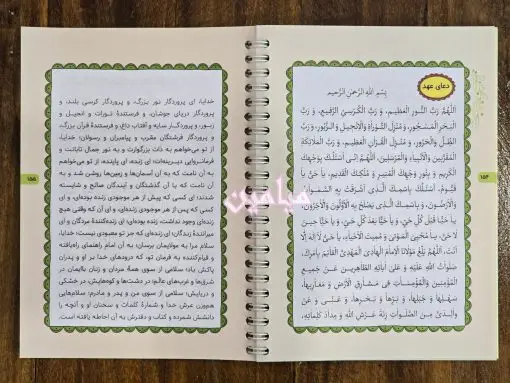 دعای عهد
بِسْمِ اللَّهِ الرَّحْمَنِ الرَّحِيمِ
اَللَّهُمَّ رَبَّ النُّورِ الْعَظِيمِ، وَ رَبَّ الْكُرْسِيِّ الرَّفِيعِ، وَ رَبَّ
الْبَحْرِ الْمَسْجُورِ، وَ مُنْزِلَ التَّوْرَاةِ وَ الْإِنْجِيلِ وَ الزَّبُورِ، وَ رَبَّ
الظِّلِّ وَ الْحَرُورِ، وَ مُنْزِلَ الْقُرْآنِ الْعَظِيمِ، وَ رَبَّ الْمَلَائِكَةِ
الْمُقَرَّبِينَ وَ الْأَنْبِيَاءِ وَ الْمُرْسَلِينَ. اَللَّهُمَّ إِنِّي أَسْأَلُكَ بِوَجْهِكَ
الْكَرِيمِ وَ بِنُورِ وَجْهِكَ الْمُنِيرِ وَ مُلْكِكَ الْقَدِيمِ، يَا حَيُّ يَا
قَيُّومُ، أَسْأَلُكَ بِاسْمِكَ الَّذِي أَشْرَقَتْ بِهِ السَّمَاوَاتُ
وَ الْأَرَضُونَ، وَ بِاسْمِكَ الَّذِي يَصْلَحُ بِهِ الْأَوَّلُونَ وَ الْآخِرُونَ،
يَا حَيّاً قَبْلَ كُلِّ حَيٍّ، وَ يَا حَيّاً بَعْدَ كُلِّ حَيٍّ، وَ يَا حَيّاً حِينَ
لَا حَيَّ، يَا مُحْيِيَ الْمَوْتَى وَ مُمِيتَ الْأَحْيَاءِ، يَا حَيُّ لَا إِلَهَ إِلَّا
أَنْتَ، اَللَّهُمَّ بَلِّغْ مَوْلَانَا الْإِمَامَ الْهَادِيَ الْمَهْدِيَّ الْقَائِمَ بِأَمْرِكَ،
صَلَوَاتُ اللَّهِ عَلَيْهِ وَ عَلَى آبَائِهِ الطَّاهِرِينَ عَنْ جَمِيعِ
الْمُؤْمِنِينَ وَ الْمُؤْمِنَاتِ فِي مَشَارِقِ الْأَرْضِ وَ مَغَارِبِهَا،
سَهْلِهَا وَ جَبَلِهَا، وَ بَرِّهَا وَ بَحْرِهَا، وَ عَنِّي وَ عَنْ
وَالِدَيَّ مِنَ الصَّلَوَاتِ زِنَةَ عَرْشِ اللَّهِ وَ مِدَادَ كَلِمَاتِهِ،
۱۵۴
خدایا، ای پروردگار نور بزرگ، و پروردگار کرسی بلند، و
پروردگار دریای جوشان، و فرستندهٔ تورات و انجیل و
زبور، و پروردگار سایه و آفتاب داغ، و فرستندهٔ قرآن بزرگ،
و پروردگار فرشتگان مقرب و پیامبران و رسولان؛ خدایا
از تو می‌خواهم به ذات بزرگوارت و به نور جمال تابانت و
فرمانروایی دیرینه‌ات؛ ای زنده، ای پابنده، از تو می‌خواهم
به آن نامت که به آن آسمان‌ها و زمین‌ها روشن شد و به
آن نامت که با آن گذشتگان و آیندگان صالح و شایسته
شدند؛ ای کسی که پیش از هر موجودی زنده بوده‌ای، و ای
کسی که پس از هر موجودی زنده‌ای، و ای آن که وقتی هیچ
زنده‌ای وجود نداشت، زنده بوده‌ای، ای زنده‌کنندهٔ مردگان و ای
میرانندهٔ زندگان؛ ای زنده‌ای که جز تو معبودی نیست؛ خدایا،
سلام مرا به مولایمان برسان، به آن امام راهنمای راه‌یافته
و قیام‌کننده به فرمان تو، که درودهای خدا بر او و پدران
پاکش باد؛ سلامی از سوی همهٔ مردان و زنان باایمان در
شرق‌ها و غرب‌های عالم؛ در دشت‌ها و کوه‌هایش، در خشکی
و دریایش، سلامی از سوی من و پدر و مادرم؛ سلام‌هایی
هم‌وزن عرش خدا و شمارهٔ کلمات و سخنان او و آنچه را
دانشش شمرده و کتاب و دفترش به آن احاطه یافته است.
۱۵۵
میامین